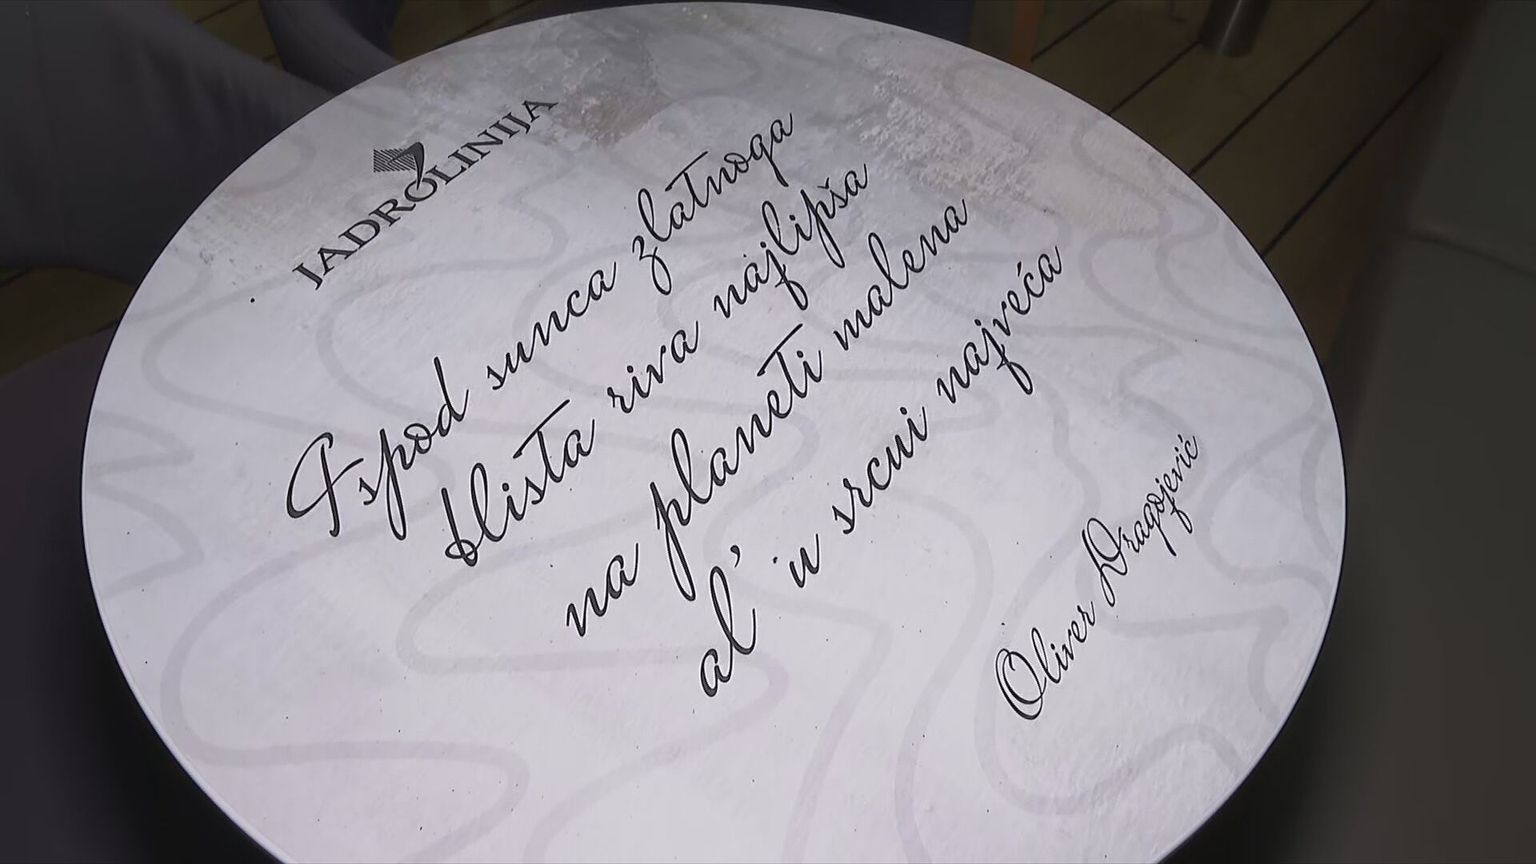 JADROLINIJA
Ispod sunca zlatnoga
blista riva najlipša
na planeti malena
al' u srcui najveća
Oliver Dragojević